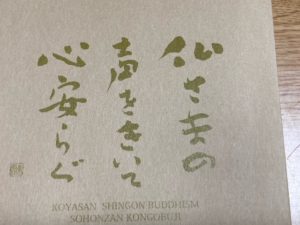 仏さまの
声をきいて
心安らぐ
KOYASAN SHINGON BUDDHISM
SOHONZAN KONGOBUJI